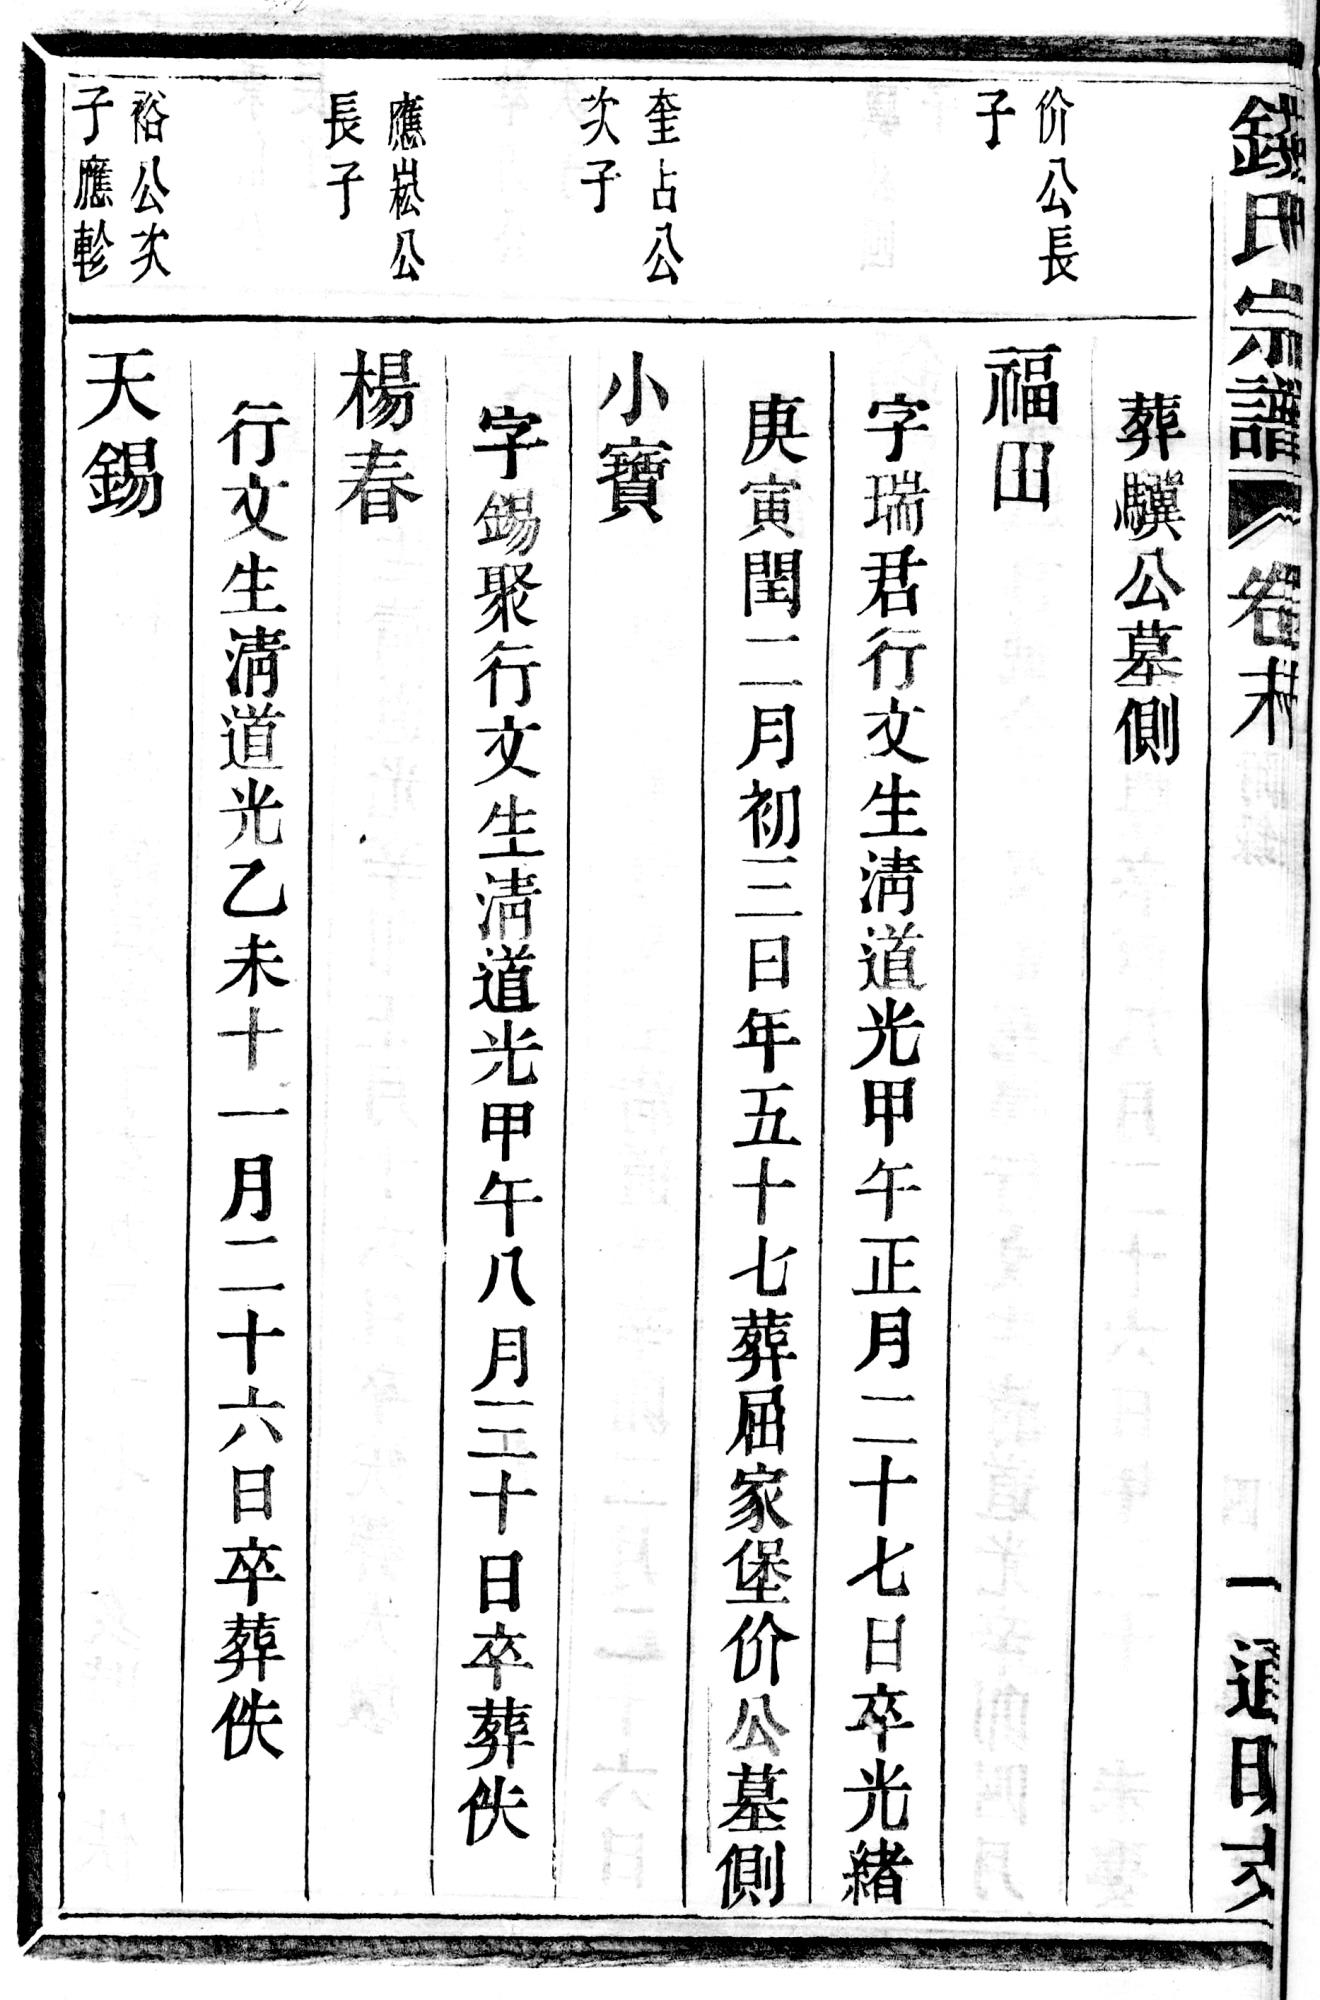 錢氏宗譜 卷末 一
葬驥公墓側
价公長
子
福田
字瑞君行文生清道光甲午正月二十七日卒光緒
庚寅閏二月初三日年五十七葬屈家堡价公墓側
奎占公
次子
小寶
字錫聚行文生清道光甲午八月三十日卒葬佚
應崧公
長子
楊春
行文生清道光乙未十一月二十六日卒葬佚
裕公次
子應軫
天錫